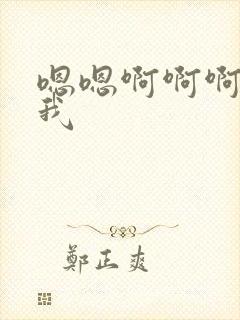 嗯嗯啊啊啊
我
鄭正爽